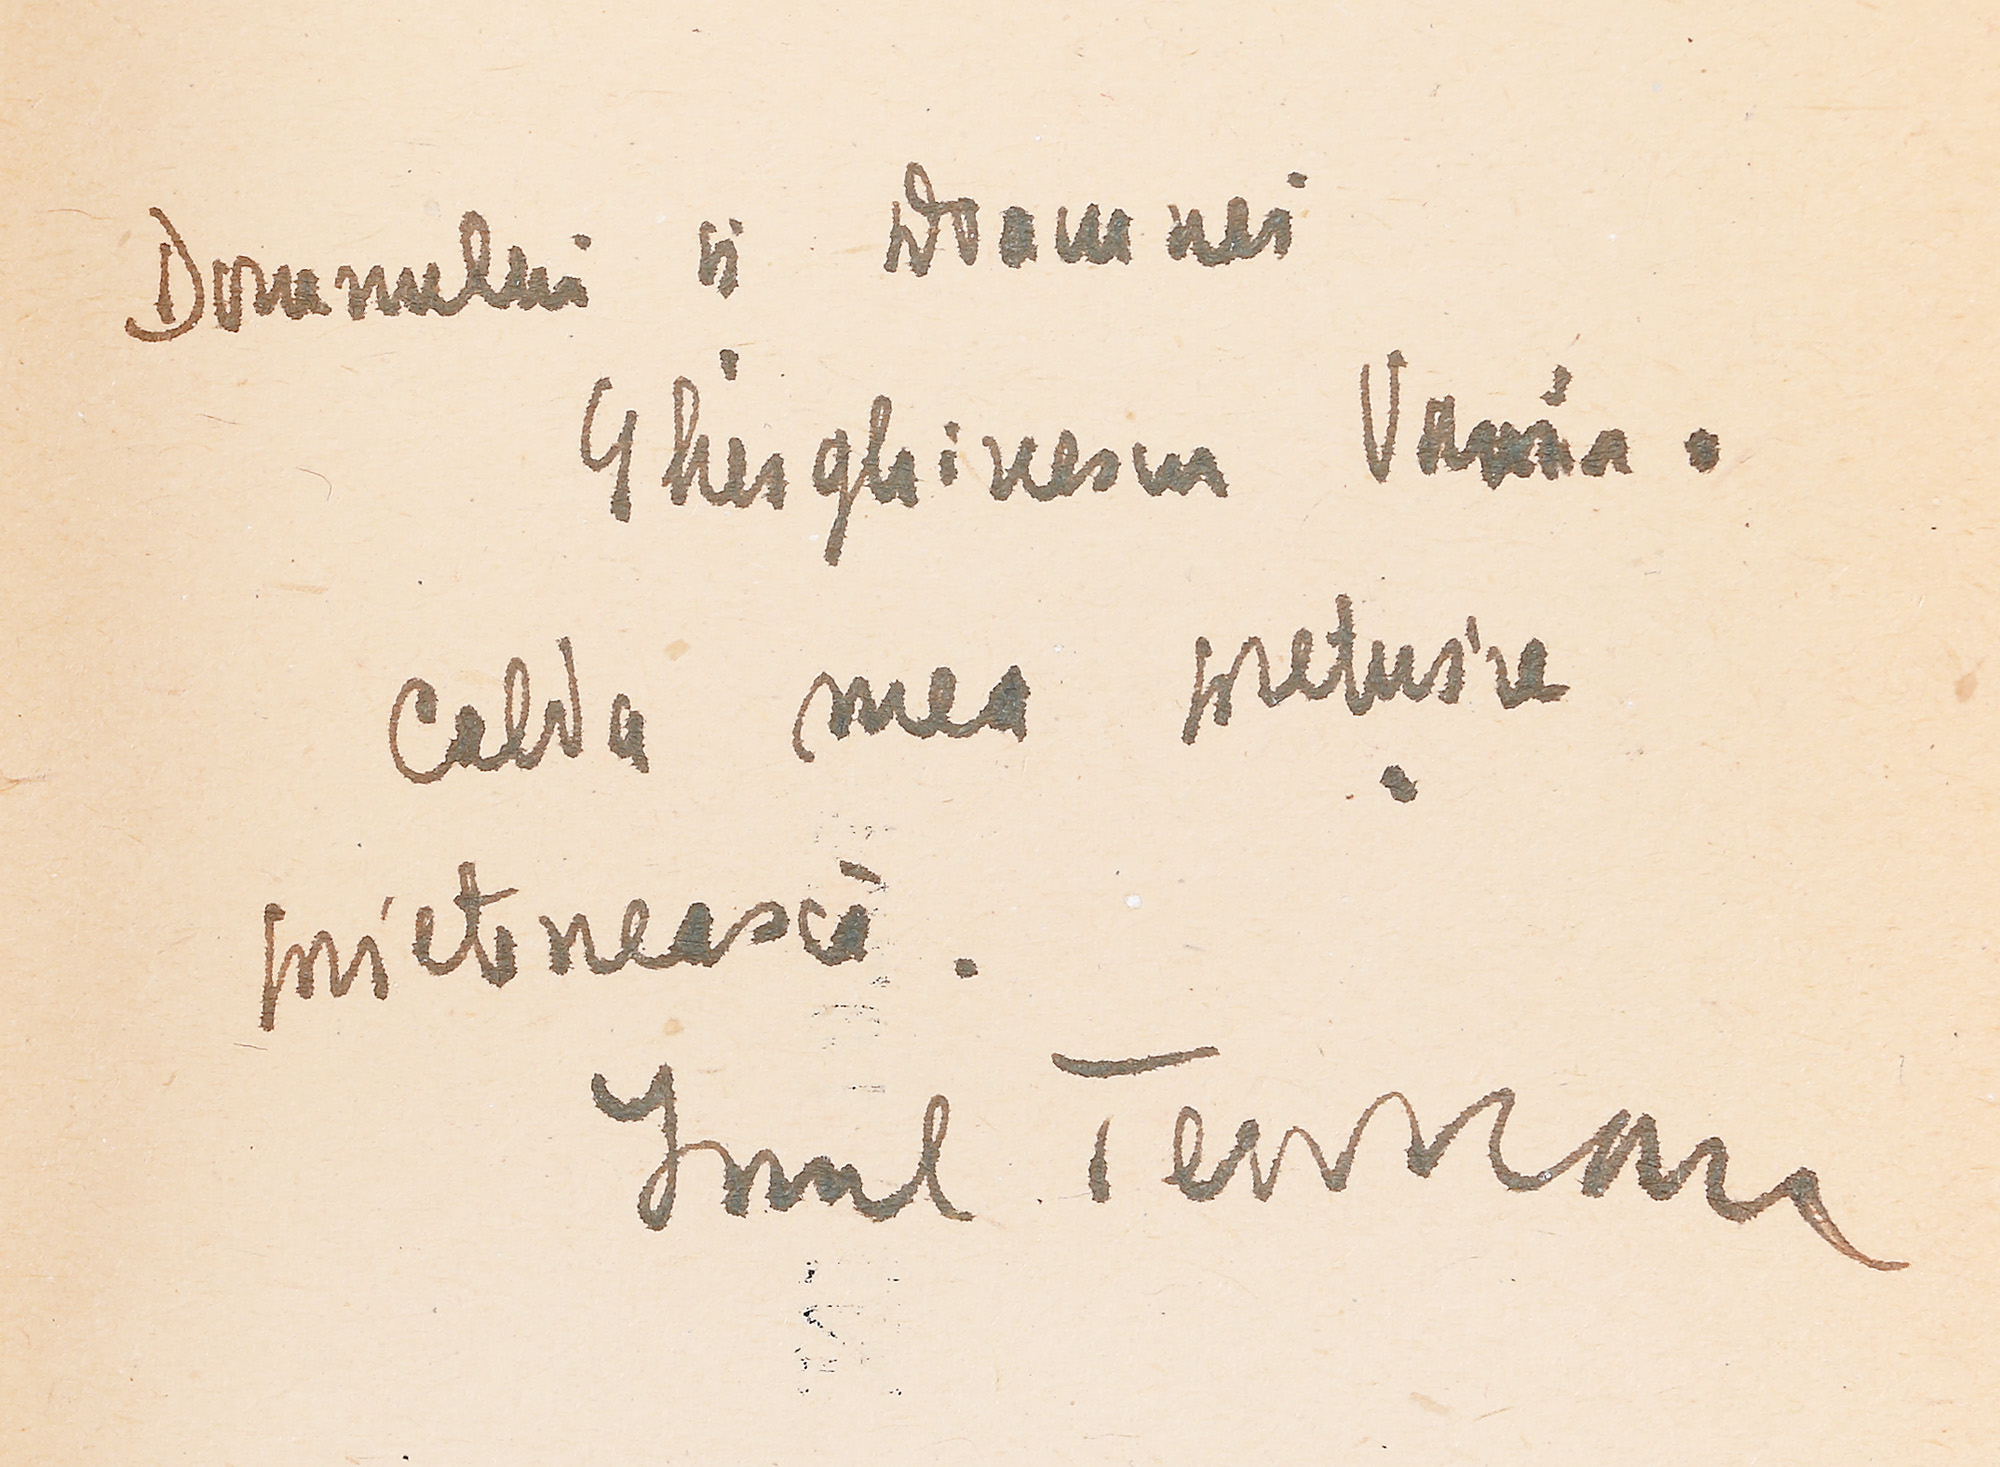 Domnului si Doamnei
Gherghinescu Vania.
Calda mea prețuire
prietenească.
Ionel Teodoreanu